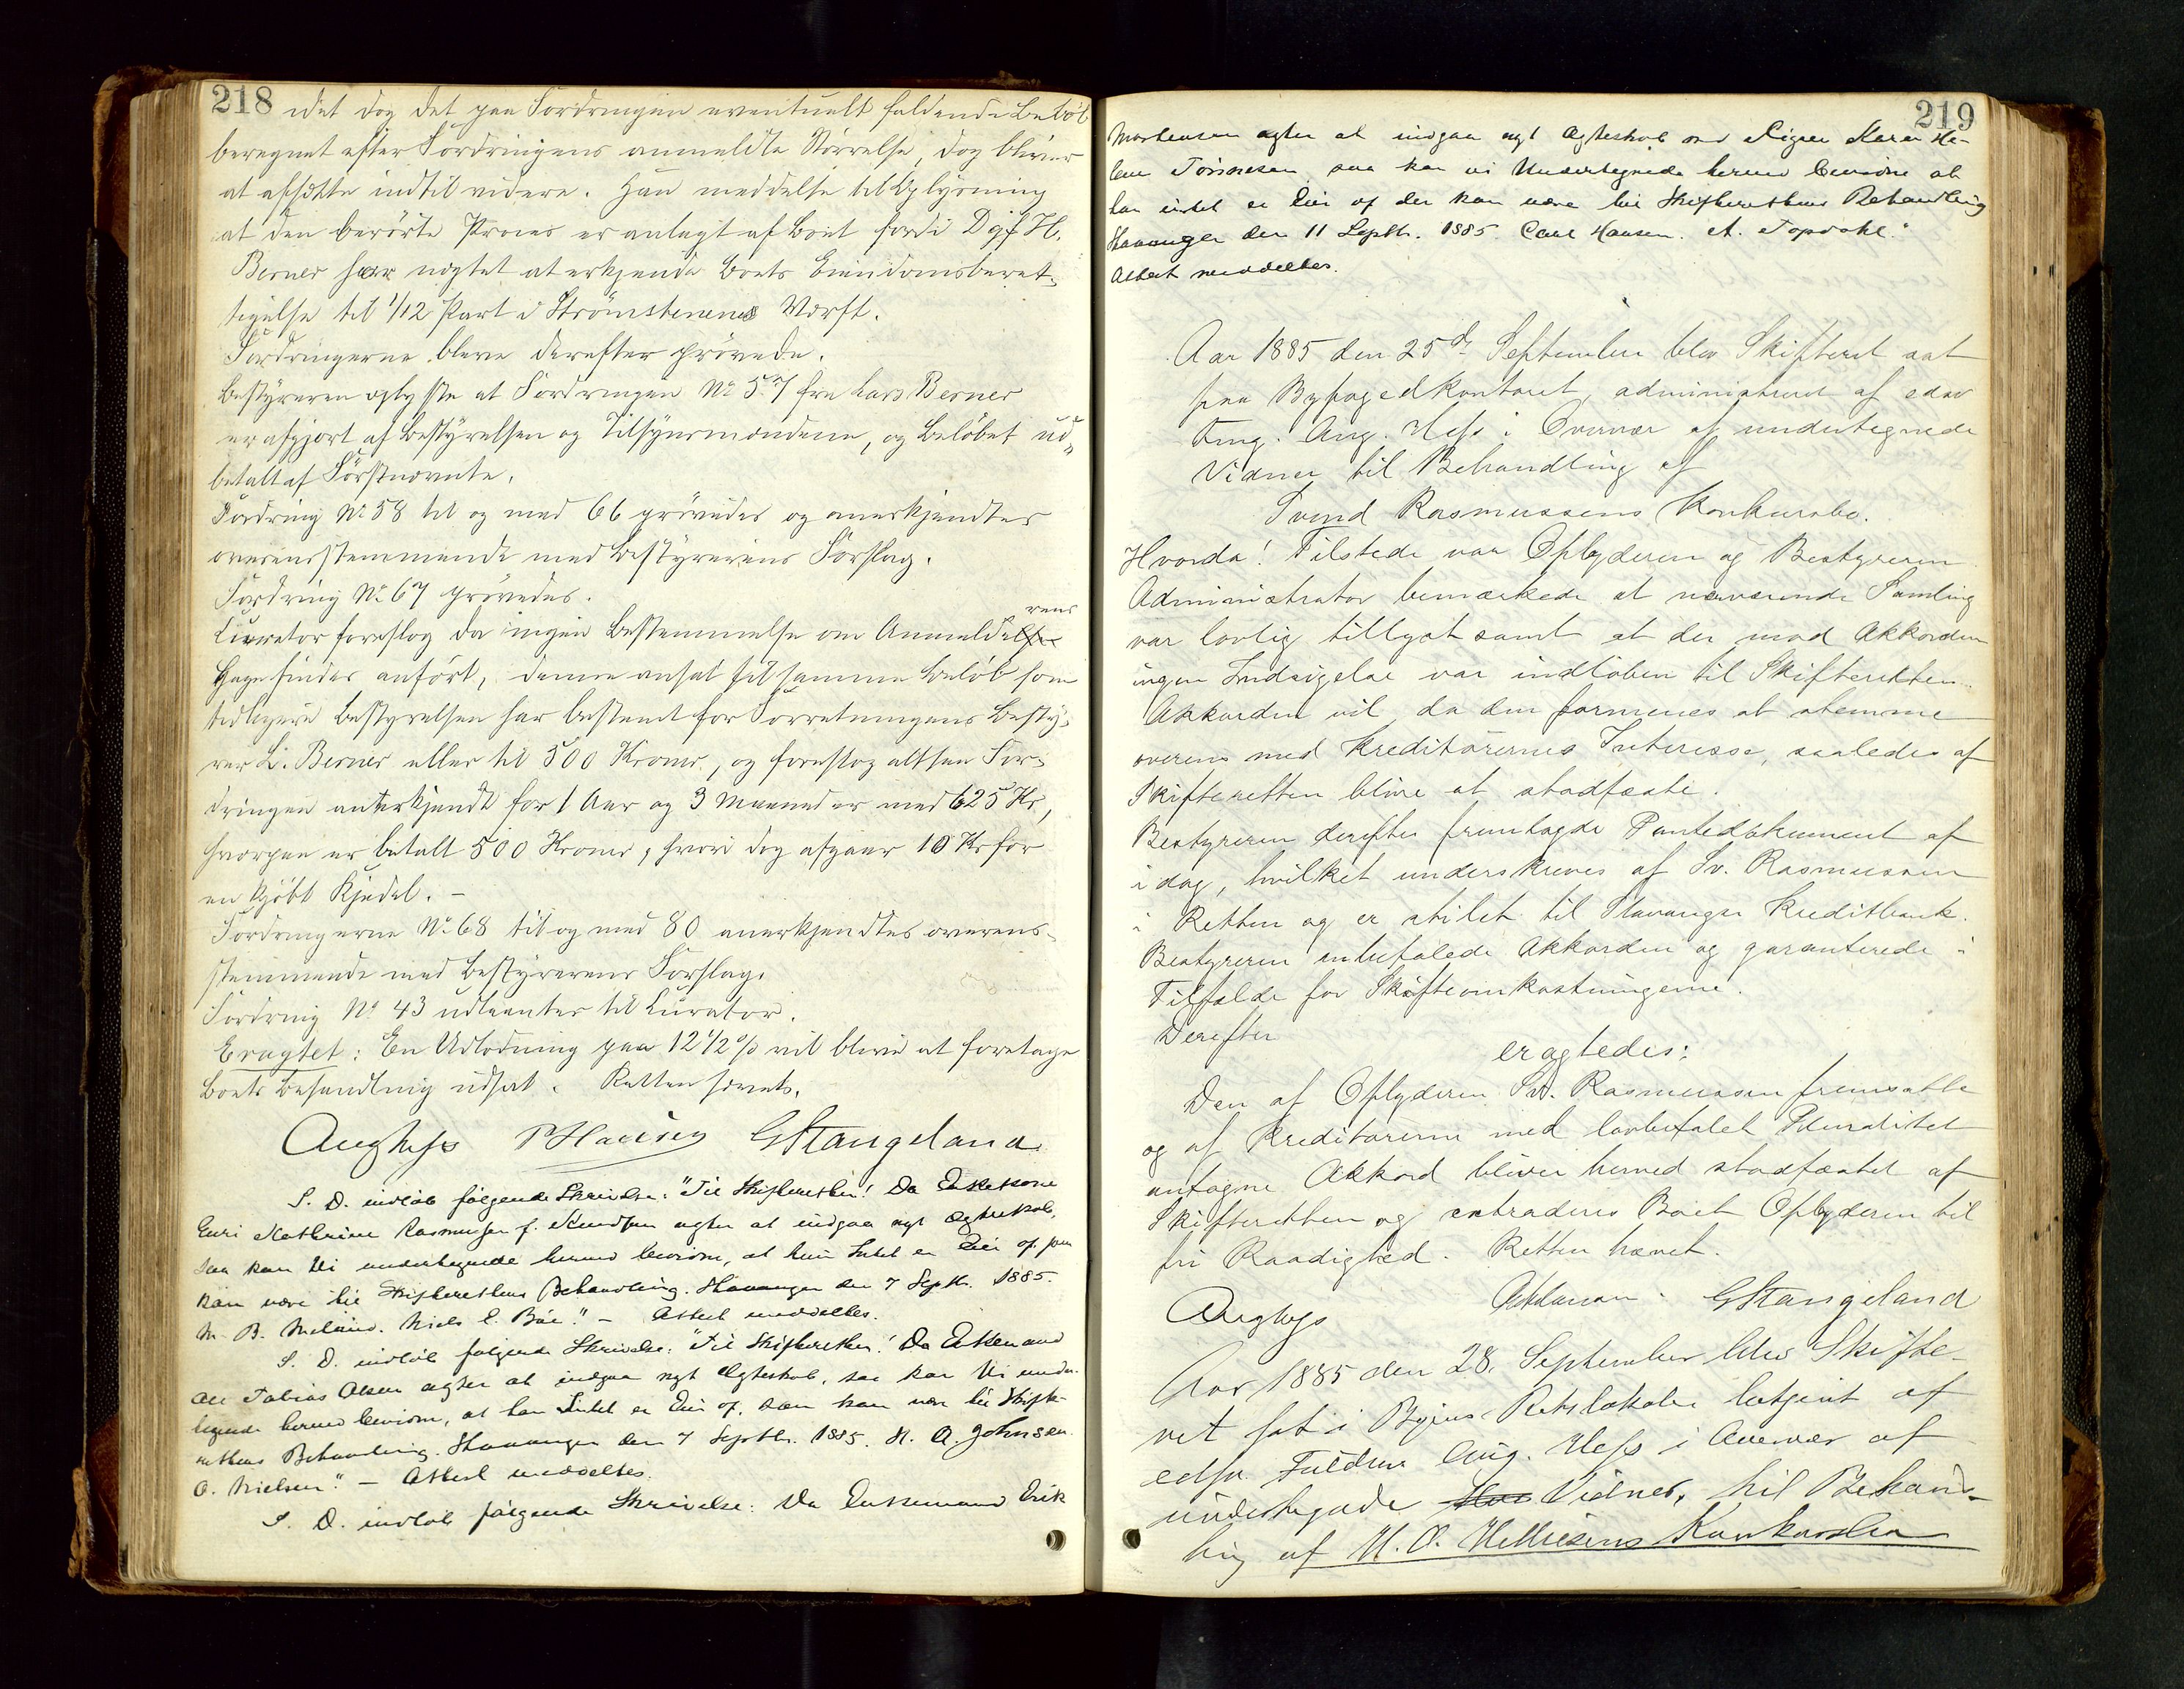 218
idet dog det paa Fordringen eventuelt faldende Beløb
beregnet efter Fordringens anmeldte Størrelse, dog bliver
at afsætte indtil videre. Han meddelte til Oplysning
at den berørte Proces er anlagt af Boet fordi D. H.
Berner har nægtet at erkjende Boets Eiendomsberet-
tigelse til 1/12 Part i Strømstenens Værft.
Fordringerne bleve derefter prøvede.
Bestyreren oplyste at Fordringen No 57 fra Lars Berner
er afgjort af Bestyrelsen og Tilsynsmændene, og Beløbet ud-
betalt af Førstnævnte.
Fordring No 58 til og med 66 prøvedes og anerkjendtes
overensstemmende med Bestyrerens Forslag.
Fordring No 67 prøvedes.
Curator foreslog da ingen Bestemmelse om Anmelderens
Gage findes anført, denne ansat til samme Beløb som
tidligere Bestyrelsen har bestemt for Forretningens Besty-
rer L. Berner eller til 500 Kroner, og foreslog altsaa For-
dringen anerkjendt for 1 Aar og 3 Maaneder med 625 Kr,
hvorpaa er betalt 500 Kroner, hvori dog afgaar 10 Kr for
en kjøbt Kjedel. -
Fordringerne No 68 til og med 80 anerkjendtes overens-
stemmende med Bestyrerens Forslag.
Fordring No 43 udlaantes til Curator.
Eragtet: En Udlodning paa 12 1/2 % vil blive at foretage
Boets Behandling udsat. Retten hævet.
Aug Hess P Hansen G Stangeland
S. D. indløb følgende Skrivelse: "Til Skifteretten! Da Enkekone
Guri Kathrine Rasmusen f. Knudsen agter at indgaa nyt Ægteskab,
saa kan Vi undertegnede herved bevidne, at hun Intet er Eier af som
kan være til Skifterettens Behandling. Stavanger den 7 Septb. 1885.
M. B. Meland. Niels E. Bøe." - Attest meddeltes.
S. D. indløb følgende Skrivelse: "Til Skifteretten! Da Enkemand
Ole Tobias Olsen agter at indgaa nyt Ægteskab, saa kan Vi under-
tegnede herved bevidne, at han Intet er Eier af, som kan være til Skifte-
rettens Behandling. Stavanger den 7 Septbr. 1885. H. A. Johnsen
O. Nielsen." - Attest meddeltes.
S. D. indløb følgende Skrivelse: Da Enkemand Erik
219
Mortensen agter at indgaa nyt Ægteskab med Pigen Karen He-
lene Tønnesen, saa kan vi Undertegnede herved bevidne at
han intet er Eier af der kan være til Skifterettens Behandling
Stavanger den 11 Septb. 1885. Carl Hansen. A. Topdahl."
Attest meddeltes.
Aar 1885 den 25de September blev Skifteret sat
paa Byfogedkontoret, administreret af edsv
Fmg. Aug. Hess i Overvær af undertegnede
Vidner til Behandling af
Svend Rasmussens Konkursbo.
Hvorda! Tilstede var Opbyderen og Bestyreren
Administrator bemærkede at nærværende Samling
var lovlig tillyst samt at der mod Akkorden
ingen Indsigelse var indløben til Skifteretten.
Akkorden vil, da den formenes at stemme
overens med Kreditorernes Interesse, saaledes af
Skifteretten blive at stadfæste.
Bestyreren derefter fremlagde Pantedokument af
i dag, hvilket underskreves af Sv. Rasmussen
i Retten og er stilet til Stavanger Kreditbank.
Bestyreren anbefalede Akkorden og garanterede i
Tilfælde for Skifteomkostningerne.
Derefter
eragtedes:
Den af Opbyderen Sv. Rasmussen fremsatte
og af Kreditorerne med lovbefalet Pluralitet
antagne Akkord bliver herved stadfæstet af
Skifteretten og extraderes Boet Opbyderen til
fri Raadighed. Retten hævet.
Aug Hess G Stangeland
Aar 1885 den 28. September blev Skifte-
ret sat i Byens Retslokale betjent af
edsv. Fuldm Aug. Hess i Overvær af
undertegnede Vidner, til Behand-
ling af H. O. Helliesens Konkursbo